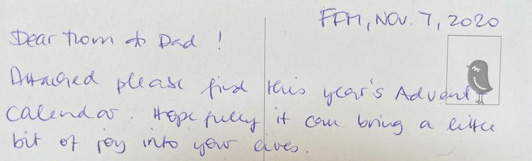 FFM, NOV. 7, 2020
Dear Mom & Dad !
Attached please find this year's Advent
Calendar. Hopefully it can bring a little
bit of joy into your lives.